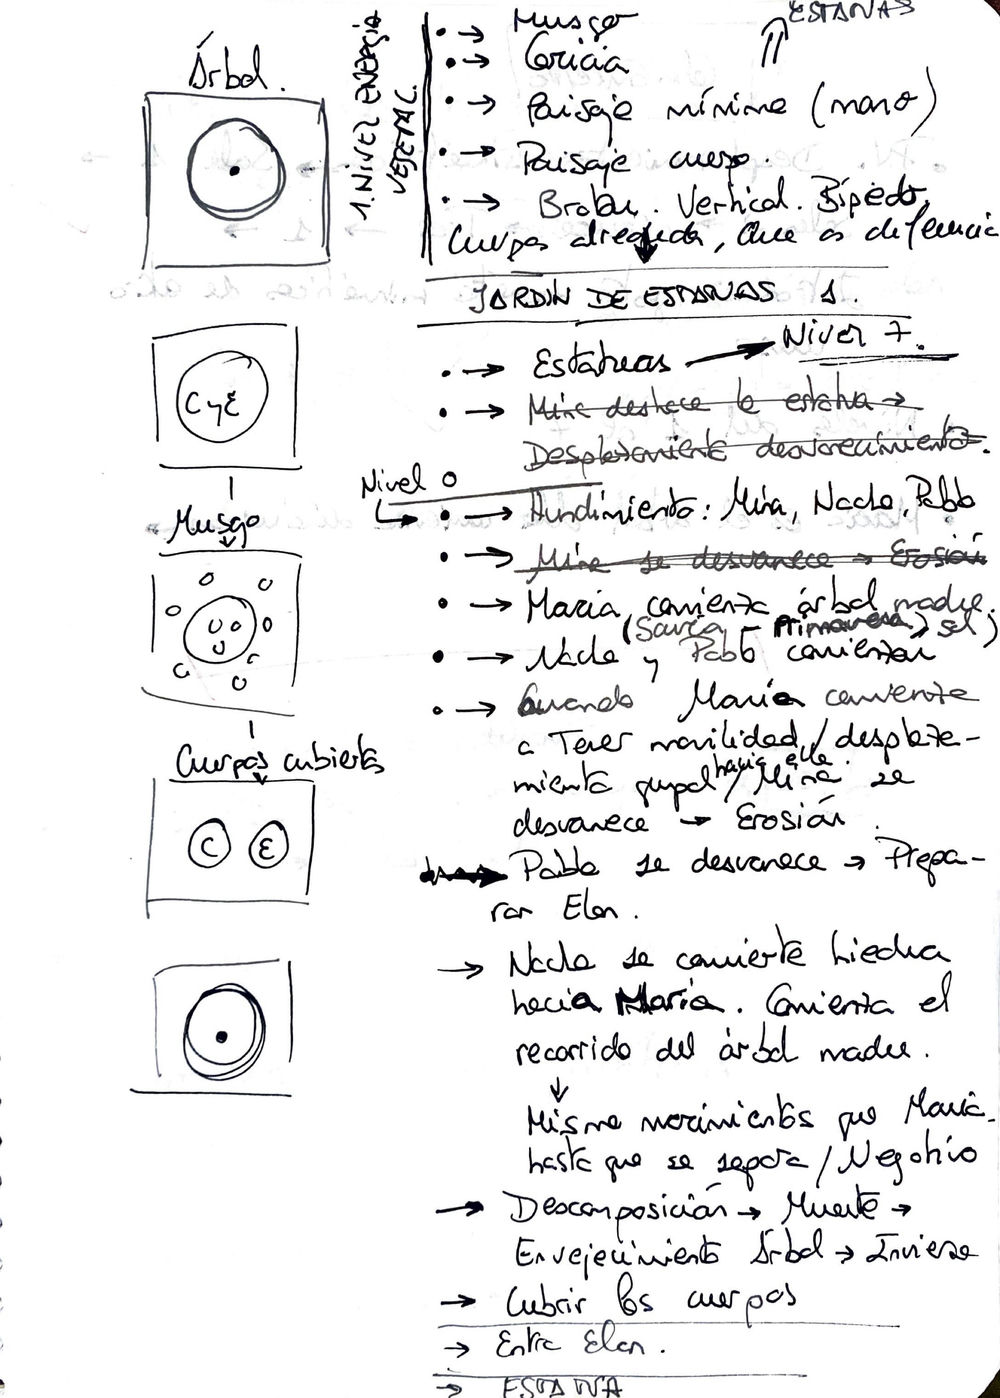 Árbol.
CyE
Musgo
Cuerpos cubiertos
C E
1. NIVEL ENERGÍA
VEGETAL.
ESTANAS
• → Musgo
• → Caricia
• → Paisaje mínimo (mano)
• → Paisaje cuerpo.
• → Brotar. Vertical. Bípedo,
Cuerpos alrededor, que os diferencia
JARDIN DE ESTANAS 1.
• → Estatuas → Nivel 7.
• → Mina deshace la estatua →
Desplazamiento desvanecimiento.
Nivel 0
• → Hundimiento: Mina, Nacho, Pablo
• → Mina se desvanece → Erosión
• → María comienza árbol madre.
(Savia - Primavera, sol)
• → Nacho y Pablo comienzan
• → Cuando María comienza
a Tener movilidad / despleza-
miento grupal hacia ella. / Mina se
desvanece → Erosión.
→ Pablo se desvanece → Prepa-
rar Elan.
→ Nacho se convierte hiedra
hacia María. Comienza el
recorrido del árbol madre.
Mismo movimientos que María
hasta que se separa / Negativo
→ Descomposición → Muerte →
Envejecimiento Árbol → Invierno
→ Cubrir los cuerpos
→ Entra Elan.
→ ESTANA